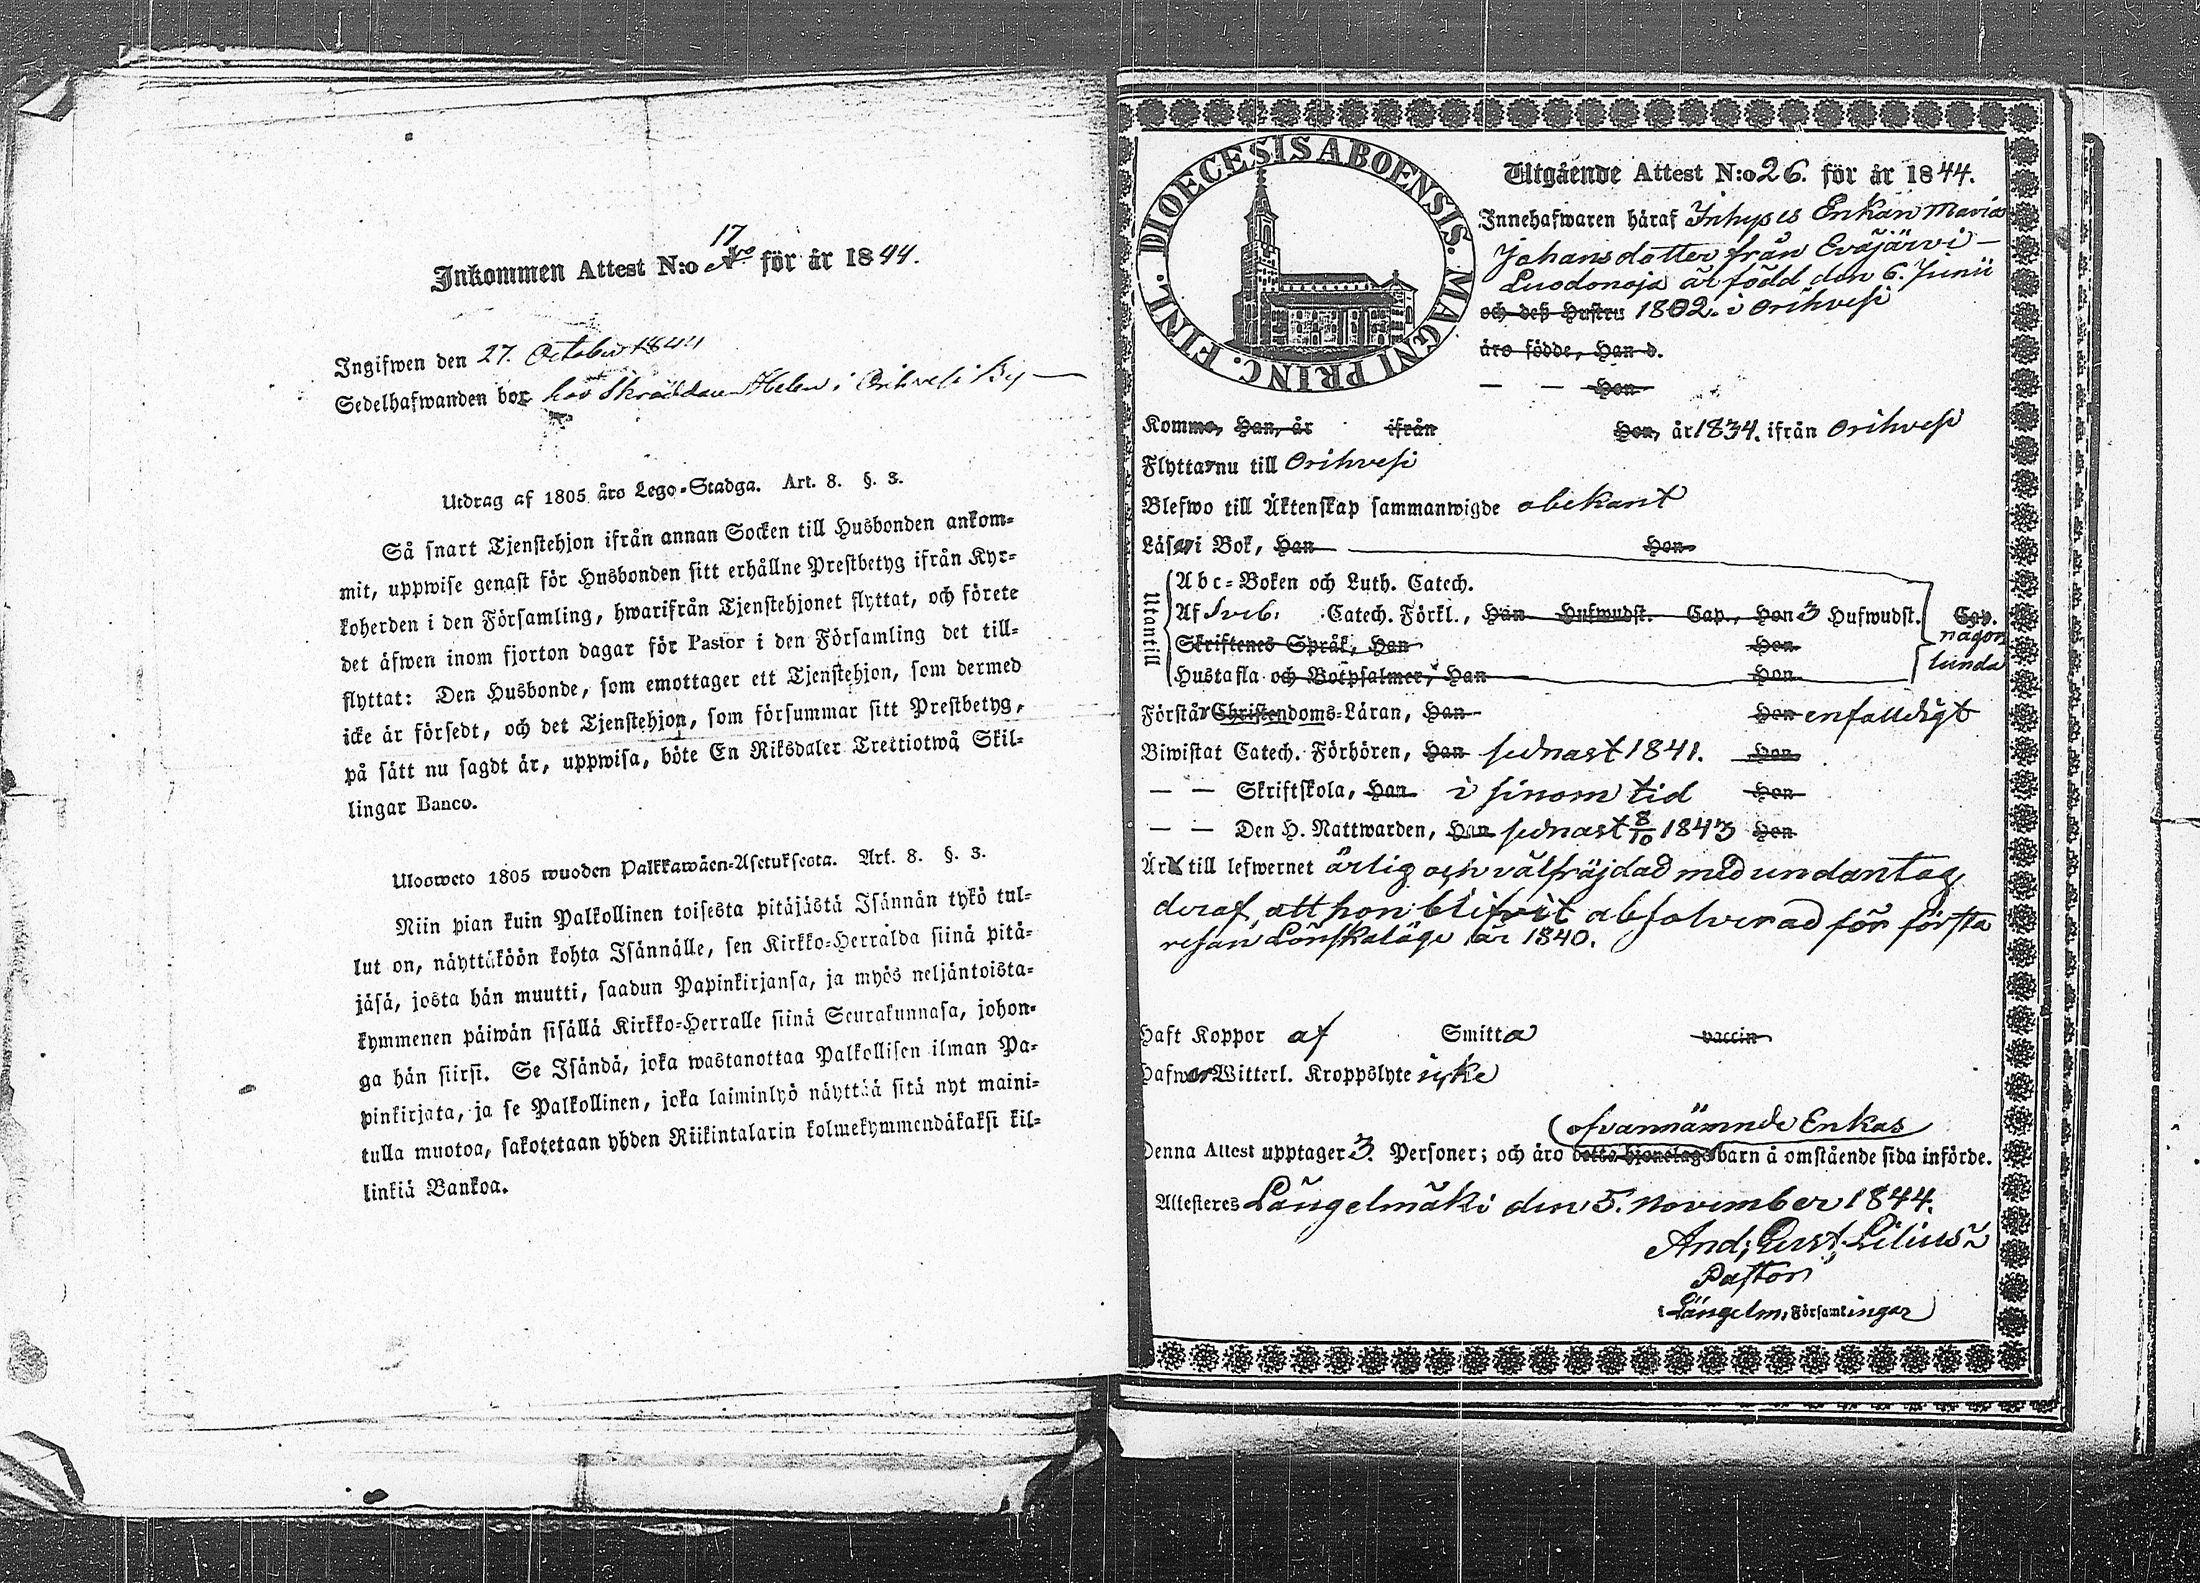 17
Inkommen Attest N:o för år 1844.
Ingifwen den 27. October 1844
Sedelhafwanden bor hos Skräddaren Helen i Orihvesi By
Utdrag af 1805 års Lego-Stadga. Art. 8. §. 3.
Så snart Tjenstehjon ifrån annan Socken till Husbonden ankom-
mit, uppwise genast för Husbonden sitt erhållne Prestbetyg ifrån Kyr-
koherden i den Församling, hwarifrån Tjenstehjonet flyttat, och förete
det äfwen inom fjorton dagar för Pastor i den Församling det till-
flyttat: Den Husbonde, som emottager ett Tjenstehjon, som dermed
icke är försedt, och det Tjenstehjon, som försummar sitt Prestbetyg,
på sätt nu sagdt är, uppwisa, böte En Riksdaler Trettiotwå Skil-
lingar Banco.
Ulosweto 1805 wuoden Palkkawäen-Asetuksesta. Art. 8. §. 3.
Niin pian kuin Palkollinen toisesta pitäjästä Isännän tykö tul-
lut on, näyttäköön kohta Isännälle, sen Kirkko-Herralda siinä pitä-
jäsä, josta hän muutti, saadun Papinkirjansa, ja myös neljäntoista-
kymmenen päiwän sisällä Kirkko-Herralle siinä Seurakunnasa, johon-
ga hän siirsi. Se Isändä, joka wastanottaa Palkollisen ilman Pa-
pinkirjata, ja se Palkollinen, joka laiminlyö näyttää sitä nyt maini-
tulla muotoa, sakotetaan yhden Riikintalarin kolmekymmendäkaksi kil-
linkiä Bankoa.
DIOECESIS ABOENSIS. MAGNI PRINC. FINL.
Utgående Attest N:o 26. för år 1844.
Innehafwaren häraf Inhyses Enkan Maria
Johansdotter från Eväjärvi-
Luodonoja är född den 6. Junii
och deß Hustru 1802. i Orihvesi
äro födde, Han d.
— — Hon
Komme, Han, år ifrån Hon, år 1834. ifrån Orihvesi
Flyttar nu till Orihvesi
Blefwo till Äktenskap sammanwigde obekant
Läser i Bok, Han Hon
Utantill
Abc-Boken och Luth. Catech.
Af Sveb. Catech. Förkl., Han Hufwudst. Cap., Hon 3 Hufwudst. Cap.
någon
Skriftenes Språk, Han Hon
lunda
Hustafla och Botpsalmer, Han Hon
Förstår Christendoms-Läran, Han Hon enfaldigt
Biwistat Catech. Förhören, Han sednast 1841. Hon
— — Skriftskola, Han i sinom tid Hon
— — Den H. Nattwarden, Han sednast 8/10 1843 Hon
Är till lefwernet ärlig och välfräjdad med undantag
deraf, att hon blifvit absolverad för första
resan Lönskaläge år 1840.
Haft Koppor af Smitta vaccin
Hafwer Witterl. Kroppslyte icke
ofvannämnde Enkas
Denna Attest upptager 3. Personer; och äro detta hjonelags barn å omstående sida införde.
Attesteres Längelmäki den 5. November 1844.
And; Gust; Lilius
Pastor
i Längelm. Församlingar